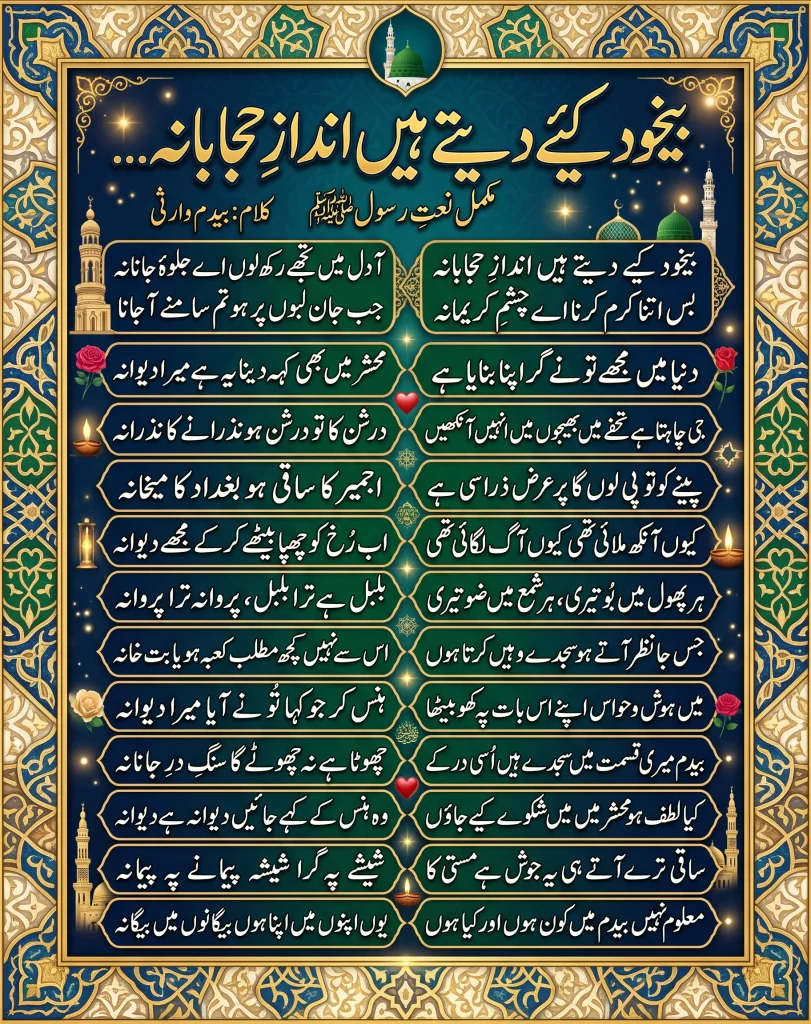 بیخود کیٔے دیتے ہیں اندازِ حجابانہ...
مکمل نعتِ رسول ﷺ
کلام: بیدم وارثی
بیخود کیے دیتے ہیں اندازِ حجابانہ
آ دل میں تجھے رکھ لوں اے جلوۂ جانانہ
بس اتنا کرم کرنا اے چشمِ کریمانہ
جب جان لبوں پر ہو تم سامنے آ جانا
دنیا میں مجھے تو نے گر اپنا بنایا ہے
محشر میں بھی کہہ دینا یہ ہے میرا دیوانہ
جی چاہتا ہے تحفے میں بھیجوں میں انہیں آنکھیں
درشن کا تو درشن ہو نذرانے کا نذرانہ
پینے کو تو پی لوں گا پر عرض ذرا سی ہے
اجمیر کا ساقی ہو بغداد کا میخانہ
کیوں آنکھ ملائی تھی کیوں آگ لگائی تھی
اب رُخ کو چھپا بیٹھے کر کے مجھے دیوانہ
ہر پھول میں بُو تیری، ہر شمع میں ضو تیری
بلبل ہے ترا بلبل، پروانہ ترا پروانہ
جس جا نظر آتے ہو سجدے وہیں کرتا ہوں
اس سے نہیں کچھ مطلب کعبہ ہو یا بت خانہ
میں ہوش و حواس اپنے اس بات پہ کھو بیٹھا
ہنس کر جو کہا تُو نے آیا میرا دیوانہ
بیدم میری قسمت میں سجدے ہیں اُسی در کے
چھوٹا ہے نہ چھوٹے گا سنگِ درِ جانانہ
کیا لطف ہو محشر میں میں شکوے کیے جاؤں
وہ ہنس کے کہے جائیں دیوانہ ہے دیوانہ
ساقی ترے آتے ہی یہ جوش ہے مستی کا
شیشے پہ گرا شیشہ پیمانے پہ پیمانہ
معلوم نہیں بیدم میں کون ہوں اور کیا ہوں
یوں اپنوں میں اپنا ہوں بیگانوں میں بیگانہ